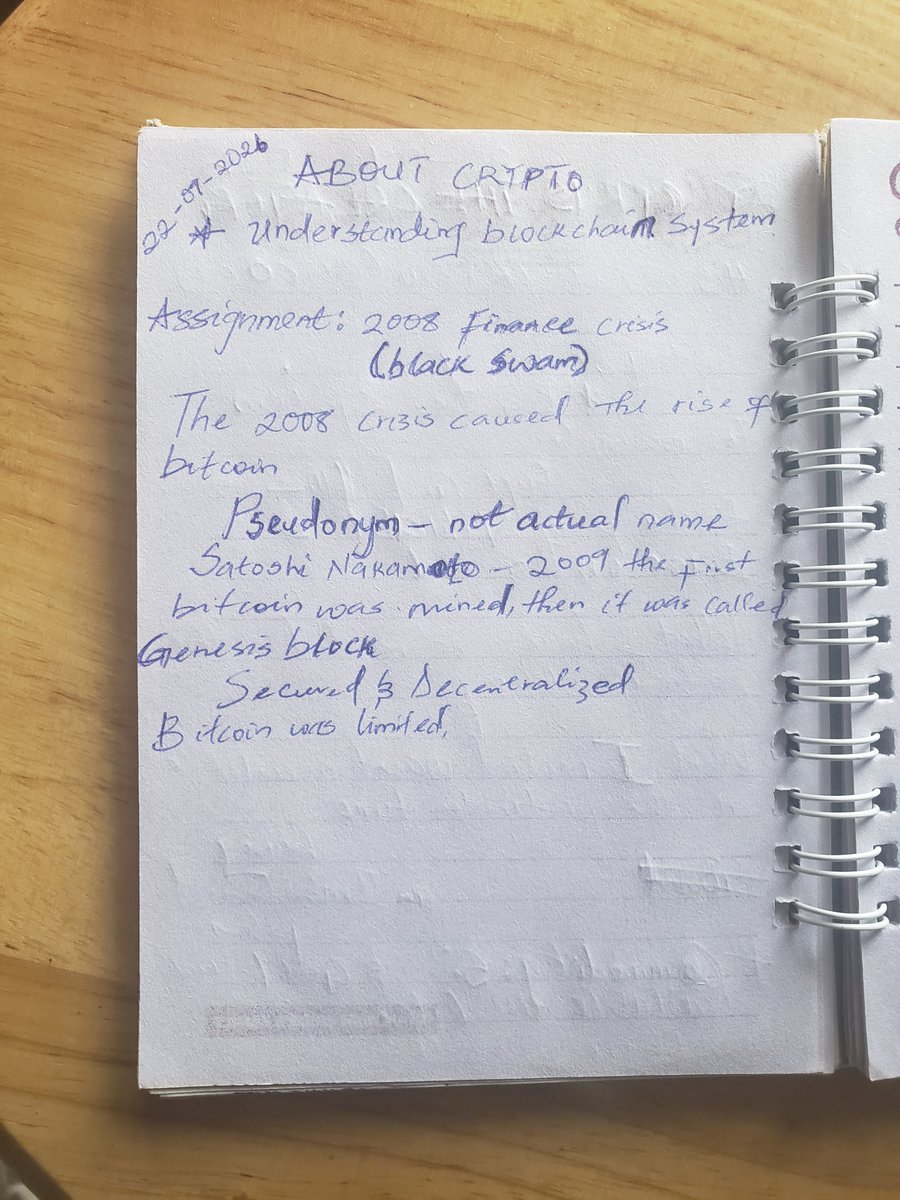 22-07-2026
ABOUT CRYPTO
* Understanding blockchain system
Assignment: 2008 Finance crisis
(black swam)
The 2008 crisis caused the rise of
bitcoin
Pseudonym - not actual name
Satoshi Nakamoto - 2009 the first
bitcoin was mined, then it was called
Genesis block
Secured & Decentralized
Bitcoin was limited,